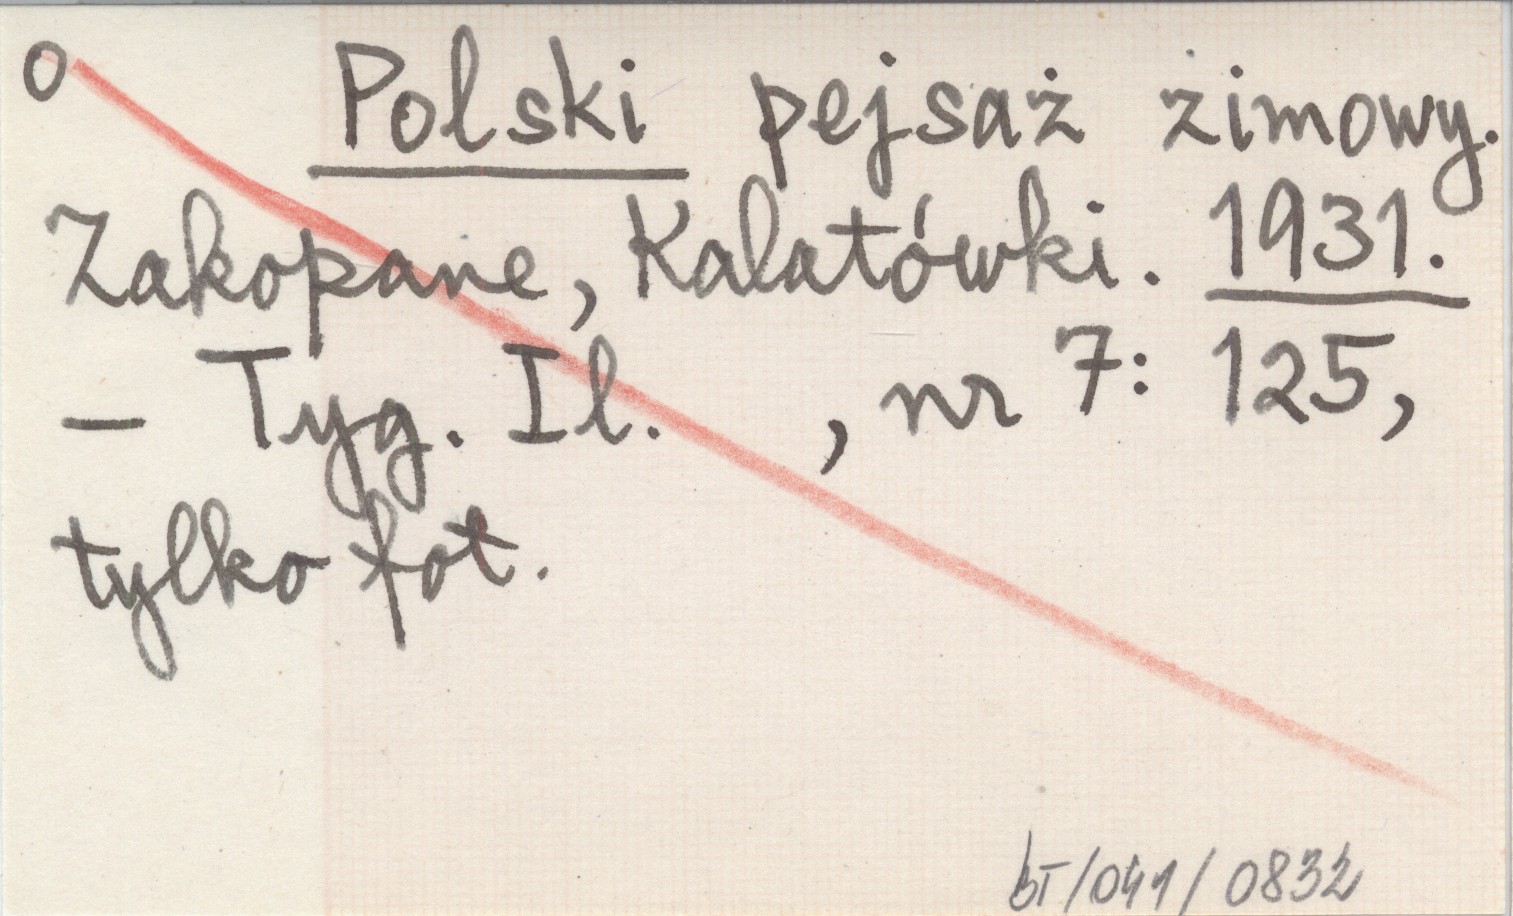 o Polski pejsaż zimowy.
Zakopane, Kalatówki. 1931.
– Tyg. Il. , nr 7: 125,
tylko fot.
bT/041/0832